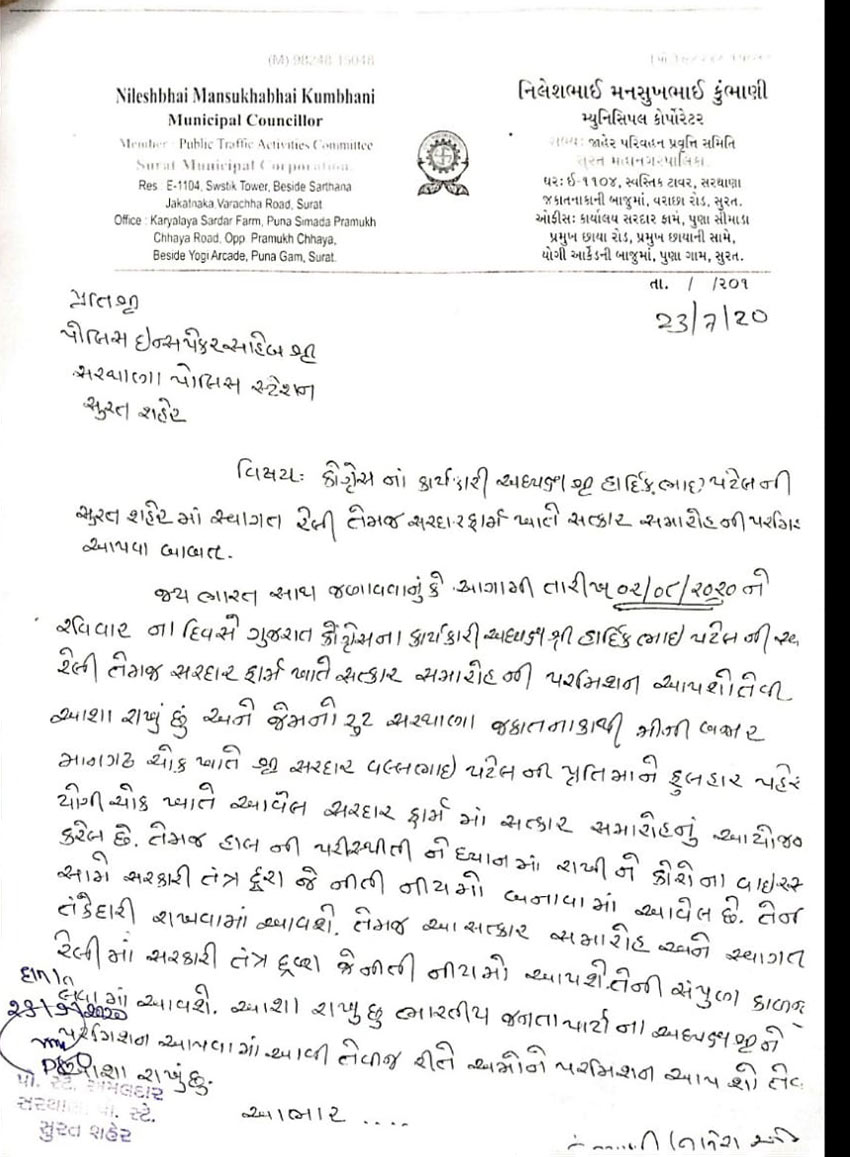 (M) 98248 15048
Nileshbhai Mansukhabhai Kumbhani
Municipal Councillor
Member : Public Traffic Activities Committee
Surat Municipal Corporation.
Res : E-1104, Swstik Tower, Beside Sarthana
Jakatnaka Varachha Road, Surat
Office : Karyalaya Sardar Farm, Puna Simada Pramukh
Chhaya Road, Opp. Pramukh Chhaya,
Beside Yogi Arcade, Puna Gam, Surat.
નિલેશભાઈ મનસુખભાઈ કુંભાણી
મ્યુનિસિપલ કોર્પોરેટર
સભ્ય: જાહેર પરિવહન પ્રવૃત્તિ સમિતિ
સુરત મહાનગરપાલિકા.
ઘર: ઈ-૧૧૦૪, સ્વસ્તિક ટાવર, સરથાણા
જકાતનાકાની બાજુમાં, વરાછા રોડ, સુરત.
ઓફીસ: કાર્યાલય સરદાર ફાર્મ, પુણા સીમાડા
પ્રમુખ છાયા રોડ, પ્રમુખ છાયાની સામે,
યોગી આર્કેડની બાજુમાં, પુણા ગામ, સુરત.
તા. / /૨૦૧
૨૩/૭/૨૦
પ્રતિશ્રી
પોલિસ ઇન્સપેકટર સાહેબ શ્રી
સરથાણા પોલિસ સ્ટેશન
સુરત શહેર
વિષય: કોંગ્રેસ નાં કાર્યકારી અધ્યક્ષ શ્રી હાર્દિકભાઇ પટેલ ની
સુરત શહેર માં સ્વાગત રેલી તેમજ સરદાર ફાર્મ ખાતે સત્કાર સમારોહ ની
આપવા બાબત.
જય ભારત સાથ જણાવવાનું કે આગામી તારીખ ૦૨/૦૮/૨૦૨૦ ને
રવિવાર ના દિવસે ગુજરાત કોંગ્રેસના કાર્યકારી અધ્યક્ષ શ્રી હાર્દિકભાઇ પટેલ ની
રેલી તેમજ સરદાર ફાર્મ ખાતે સત્કાર સમારોહ ની પરમિશન આપશો તેવી
આશા રાખું છું અને જેમનો રુટ સરથાણા જકાતનાકાથી મીની બજાર
માનગઢ ચોક ખાતે શ્રી સરદાર વલ્લભાઇ પટેલ ની પ્રતિમાને ફુલહાર પહેર
યોગીચોક ખાતે આવેલ સરદાર ફાર્મ માં સત્કાર સમારોહનું આયોજન
કરેલ છે. તેમજ હાલ ની પરીસ્થીતી ને ધ્યાનમાં રાખી ને કોરોના વાઇરસ
સામે સરકારી તંત્ર દ્વારા જે નીતી નીયમો બનાવામાં આવેલ છે. તેની
તકેદારી રાખવામાં આવશે. તેમજ આ સત્કાર સમારોહ અને સ્વાગત
રેલીમાં સરકારી તંત્ર દ્વારા જે નીતી નીયમો આપશે. તેની સંપુર્ણ
લેવામાં આવશે. આશા રાખુ છુ ભારતીય જનતા પાર્ટી ના અધ્યક્ષ શ્રી ને
પરમિશન આપવામાં આવી તેવીજ રીતે અમોને પરમિશન આપશો તેવ
આશા રાખું છુ.
આભાર ....
૨૩/૭/૨૦૨૦
PSO
પો. સ્ટે. અમલદાર
સરથાણા પો. સ્ટે.
સુરત શહેર